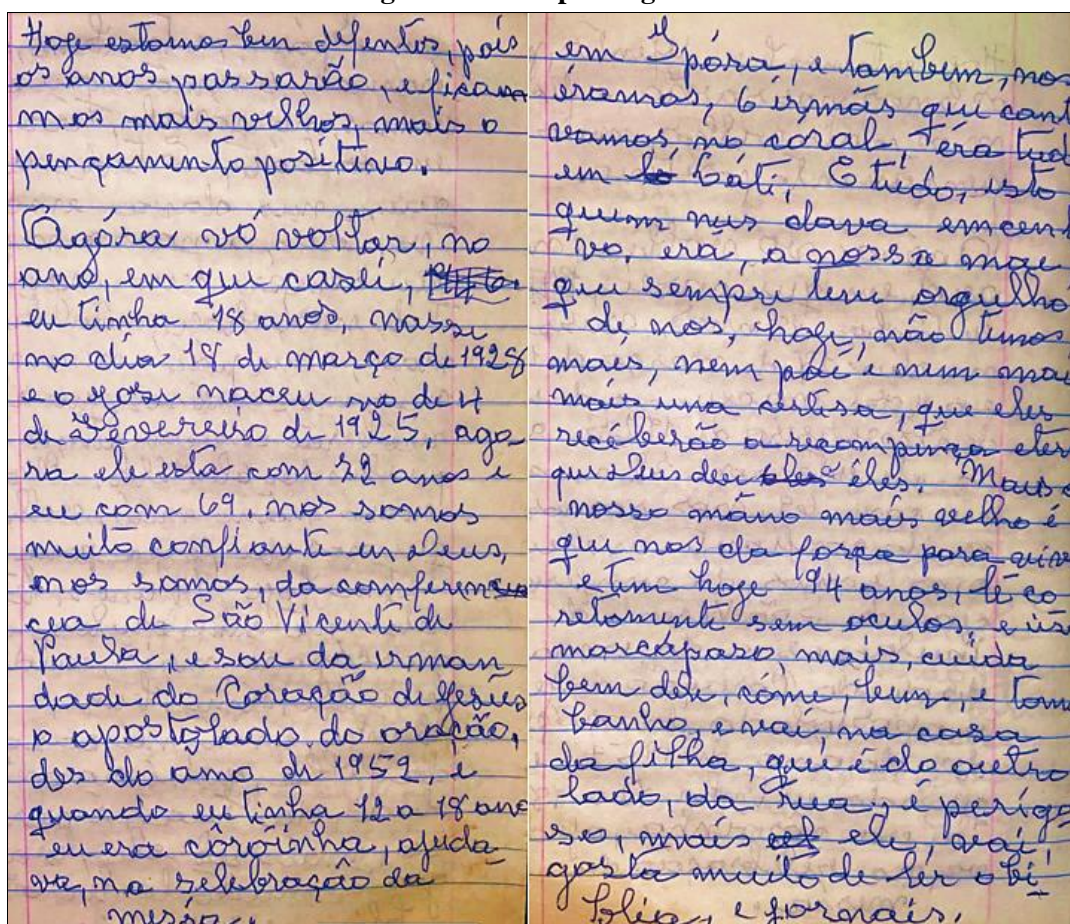 Hoge estamos ben difentos, pois
os anos passarão, e ficam
mos mais velhos, mais o
pençamento positivo.
Agóra vó voltar, no
ano, em que casei,
eu tinha 18 anos, nassi
no dia 18 de março de 1928
e o gose naceu no de 4
de Fevereiro de 1925, ago-
ra ele esta com 72 anos e
eu com 69, nos somos
muito confiante en Deus,
nos somos, da comferen
cia de São Vicente de
Paula, e sou da irman
dade do Coração de Jesus
o apostolado do oração,
des do amo de 1952, e
quando eu tinha 12 a 18 ano
eu era côroinha, ajuda-
va, na selebração da
missa,
em Ipóra, e tambem, nos
éramos, 6 irmãs que cant
vamos, no coral, éra tud
em láti, E tudo, isto
quem nus dava emcen
vo, era, a nossa mãe
que sempre teve orgulho
de, nos, hoge, não temos
mais, nem pai e nem mai
mais uma certesa, que eles
recéberão a recompença eter
que Deus deu éles. Mais o
nosso máno mais velho é
que nos da força para vive
e tem hoge 94 anos, lê co
retamente sem oculos, e us
marcápaso, mais, cuida
bem dele, cóme, bem, e tom
banho, e vai, na casa
da filha, que é do outro
lado, da rua, é perigo
so, mais ele, vai,
gosta muito de ler o bi-
blia, e jornais.